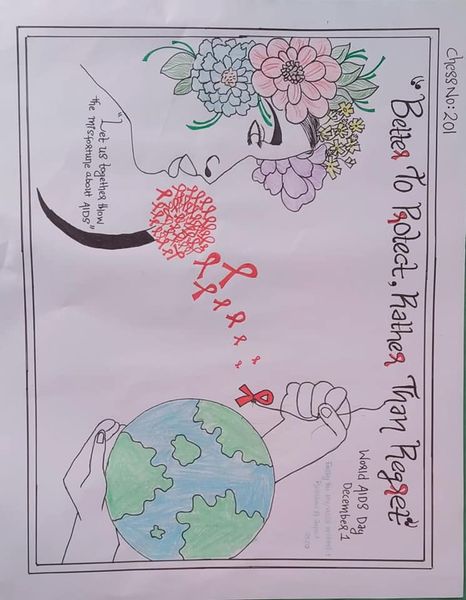 Chess No: 201
"Better To Protect, Rather Than Regret"
"Let us together throw
the misfortune about AIDS"
World AIDS Day
December 1